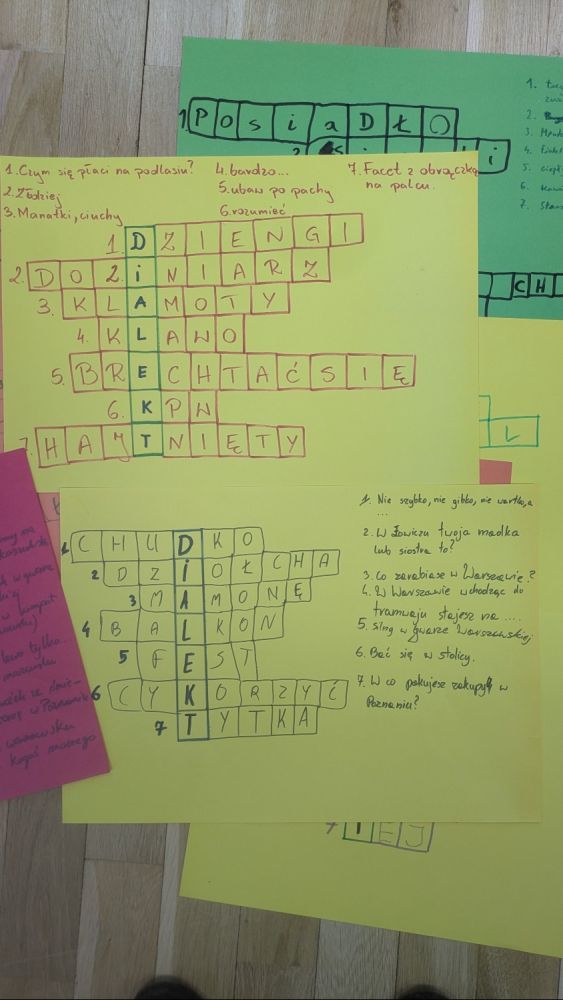 1. POSiaDŁO
1.
2.
3.
4.
5.
6.
7.
1. Czym się płaci na podlasiu?
2. Złodziej
3. Manatki, ciuchy
4. bardzo...
5. ubaw po pachy
6. rozumieć
7. Facet z obrączką
na palcu.
1. DZIENGI
2. DOLINIARZ
3. KLAMOTY
4. KLAWO
5. BRECHTAĆ SIĘ
6. KPW
7. HAJTNIĘTY
CH
L
1. Nie szybko, nie gibko, nie wartko, a
...
2. W Łowiczu twoja matka
lub siostra to?
3. Co zarabiasz w Warszawie?
4. W Warszawie wchodząc do
tramwaju stajesz na ....
5. w gwarze Warszawskiej
6. Bać się w stolicy.
7. W co pakujesz zakupy w
Poznaniu?
1 CHUDKO
2 DZIOŁCHA
3 MAMONĘ
4 BALKON
5 FEST
6 CYKORZYĆ
7 TYTKA
w gwarze
tylko...
w Poznaniu
kogoś mocnego
7 IEJ